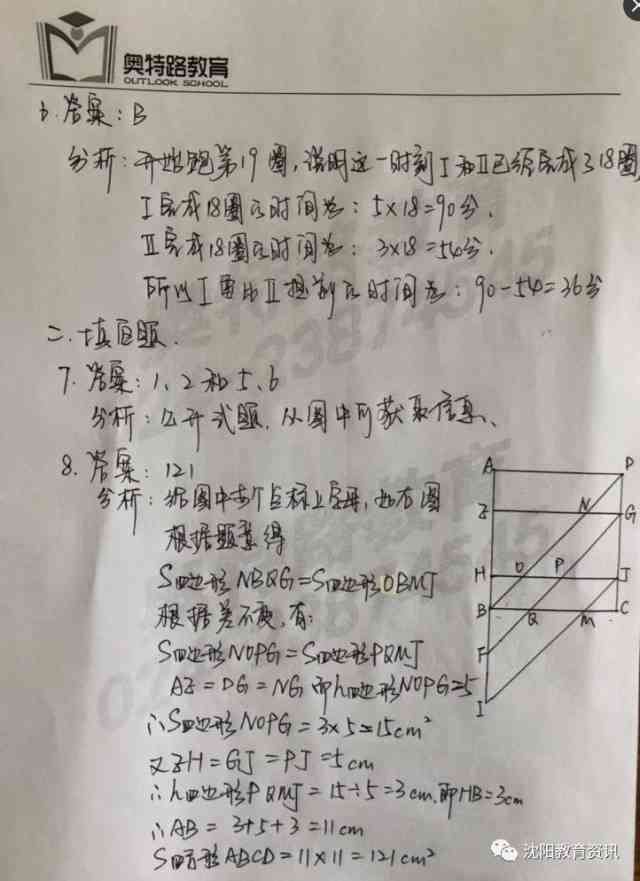 奥特路教育
OUTLOOK SCHOOL
6.答案:B
分析:开始跑第19圈,说明这一时刻I和II已经完成了18圈,
I完成18圈的时间为:5×18=90分.
II完成18圈的时间为:3×18=54分.
所以I要比II提前的时间为:90-54=36分
二.填空题.
7.答案:1、2和5、6
分析:公开式题,从图中可获取信息、
8.答案:121
分析:给图中每个点标上字母,如右图
根据题意得
S四边形NBQG=S四边形OBMJ
根据差不变,有:
S四边形NOPG=S四边形PQMJ
AZ=DG=NG 即h四边形NOPG=5
∴S四边形NOPG=3×5=15cm²
又ZH=GJ=PJ=5cm
∴h四边形PQMJ=15÷5=3cm,即HB=3cm
∴AB=3+5+3=11cm
S正方形ABCD=11×11=121cm²
A
P
Z
N
G
H
O
P
J
B
Q
M
C
F
I
23874545
沈阳教育资讯